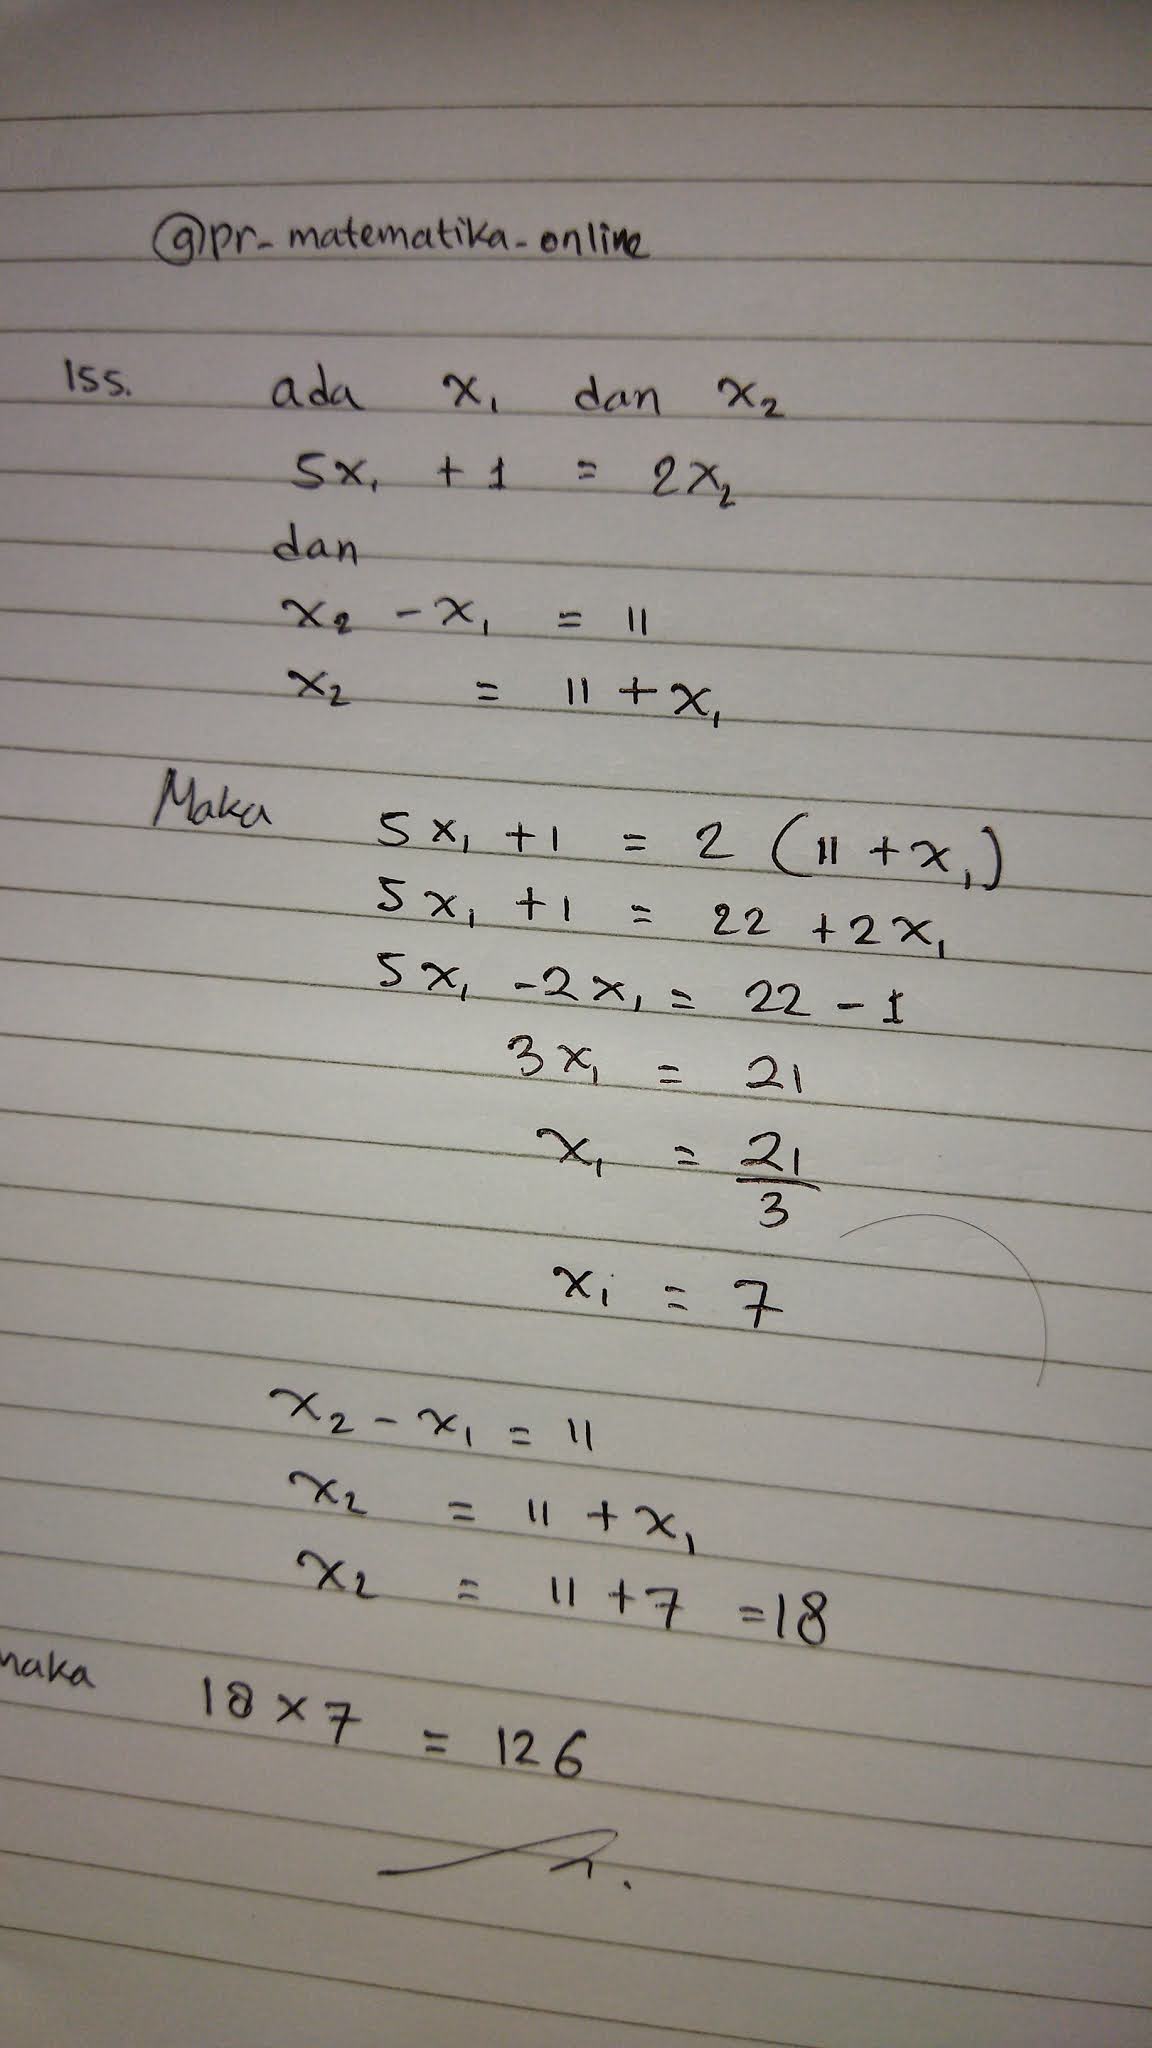 @pr_matematika_online
155. ada x₁ dan x₂
5x₁ + 1 = 2x₂
dan
x₂ - x₁ = 11
x₂ = 11 + x₁
Maka 5x₁ + 1 = 2 (11 + x₁)
5x₁ + 1 = 22 + 2x₁
5x₁ - 2x₁ = 22 - 1
3x₁ = 21
x₁ = 21/3
x₁ = 7
x₂ - x₁ = 11
x₂ = 11 + x₁
x₂ = 11 + 7 = 18
maka 18 x 7 = 126